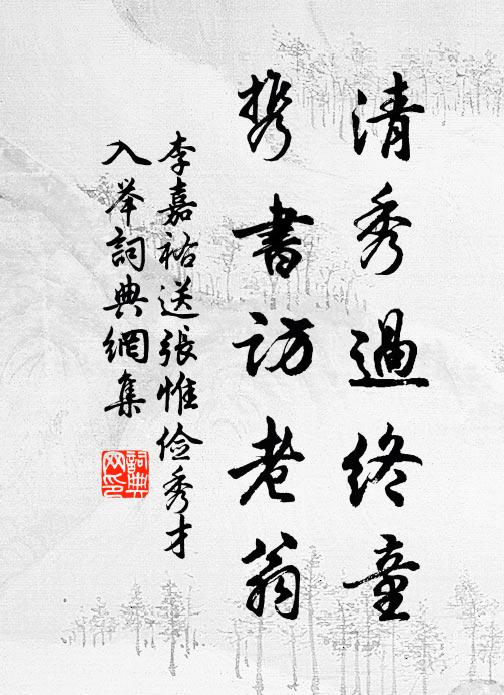 清秀過終童
携書訪老翁
李嘉祐送張惟俭秀才
入举詞典網集
詞典網印